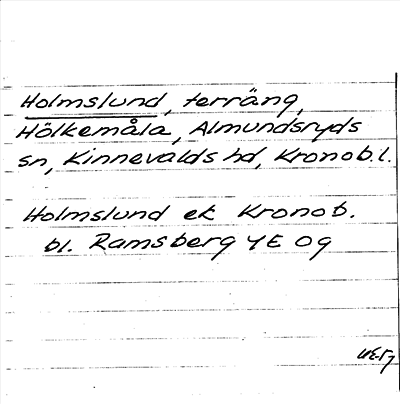 Holmslund, terräng,
Hölkemåla, Almundsryds
sn, Kinnevalds hd, Kronob.l.
Holmslund ek Kronob.
bl. Ramsberg 4E 0g